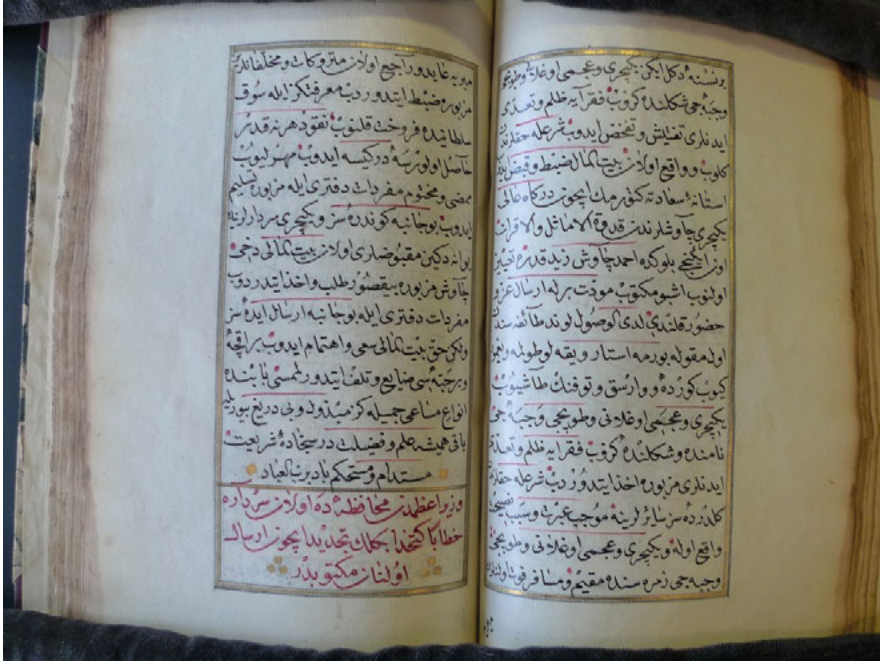 دكل ايكن يكيچرى و عجمى اوغلانى وطوپجى
وجبه جى شكلنده كروب فقرايه ظلم وتعدى
ايدنلرى تفتيش و تفحص ايدوب شرعله حقلرندن
كلوب و واقع اولان بيت المال ضبط و قبض ايدوب
استانهٔ سعادته كتورمك ايچون دركاه عالى
يكيچرى چاوشلرندن قدوة الاماثل والاقران
اون بلوكده احمد چاوش زيد قدره تعيين
اولنوب اشبو مكتوب مودت برله ارسال عزيز
حضور قلندى لدى الوصول لوند طائفه سندن
اولمقوله بورمه استار و يقه لو طولمه
كيوب كورده و وارسق و توفنك طاشيوب
يكيچرى و عجمى اوغلانى و طوپجى و جبه جى
نامنده و شكلنده كروب فقرايه ظلم و تعدى
ايدنلرى مزبوره اخذ ايتدوردب شرعله حقلرندن
كلدرده سز سايرلرينه موجب عبرت و سبب نصيحت
واقع اوله و يكيچرى و عجمى اوغلانى و طوپجى
وجبه جى زمره سنده مقيم و مسافر فوت اولنلردن
ميريه عايد و راجع اولان متروكات و مخلفاتلرين
مزبوره ضبط ايتدوردب معرفتكز ايله سوق
سلطانيده فروخت قلنوب نقود هر نه قدر
حاصل اولورسه در كيسه ايدوب مهرليوب
ممضى و مختوم مفردات دفترى ايله مزبوره تسليم
ايدوب بو جانبه كوندره سز و يكيچرى سردارلرينه
بو انه دكين مقبوضلرى اولان بيت المالى دخى
چاوش مزبوره بيقصور طلب و اخذ ايتدردوب
مفردات دفترى ايله بو جانبه ارسال ايده سز
ولكن حق بيت المالى سعى و اهتمام ايدوب بر اقچه
و بر حبه سى ضايع و تلف ايتدورلمسى بابنده
انواع مساعى جميله كز مبذول دريغ بيورلميه
باقى هميشه علم و فضيلت در سجادهٔ شريعت
مستدام و مستحكم باد برب العباد
وزير اعظمدن محافظه ده اولان سرداره
خطابا كتخدا تجديد ايچون ارسال
اولنان مكتوبدر